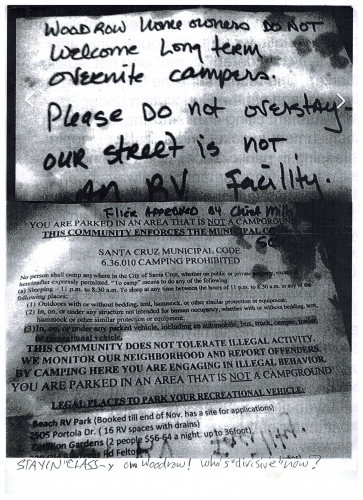 WOODROW Home owners DO NOT
Welcome Long term
overnite campers.
Please Do not overstay
our street is not
an RV Facility.
Flier Approved By Chief Mills
YOU ARE PARKED IN AREA THAT IS NOT A CAMPGROUND
THIS COMMUNITY ENFORCES THE MUNICIPAL
SANTA CRUZ MUNICIPAL CODE
6.36.010 CAMPING PROHIBITED
No person shall camp anywhere in the City of Santa Cruz, whether on public or private property, except as
hereinafter expressly permitted. "To camp" means to do any of the following:
(a) Sleeping – 11 p.m. to 8:30 a.m. To sleep at any time between the hours of 11 p.m. to 8:30 a.m. in any of the
following places:
(1) Outdoors with or without bedding, tent, hammock, or other similar protection or equipment;
(2) In, on, or under any structure not intended for human occupancy, whether with or without bedding, tent,
hammock or other similar protection or equipment;
(3) In, on, or under any parked vehicle, including an automobile, bus, truck, camper,
or recreational vehicle.
THIS COMMUNITY DOES NOT TOLERATE ILLEGAL ACTIVITY.
WE MONITOR OUR NEIGHBORHOOD AND REPORT OFFENDERS.
BY CAMPING HERE YOU ARE ENGAGING IN ILLEGAL BEHAVIOR.
YOU ARE PARKED IN AN AREA THAT IS NOT A CAMPGROUND
LEGAL PLACES TO PARK YOUR RECREATIONAL VEHICLE:
Beach RV Park (Booked till end of Nov. has a site for applications)
2505 Portola Dr. ( 16 RV spaces with drains)
Gardens (2 people $56-64 a night. up to 36foot)
Rd Felton
STAYIN "CLASS-y on Woodrow! who's "divisive" now?